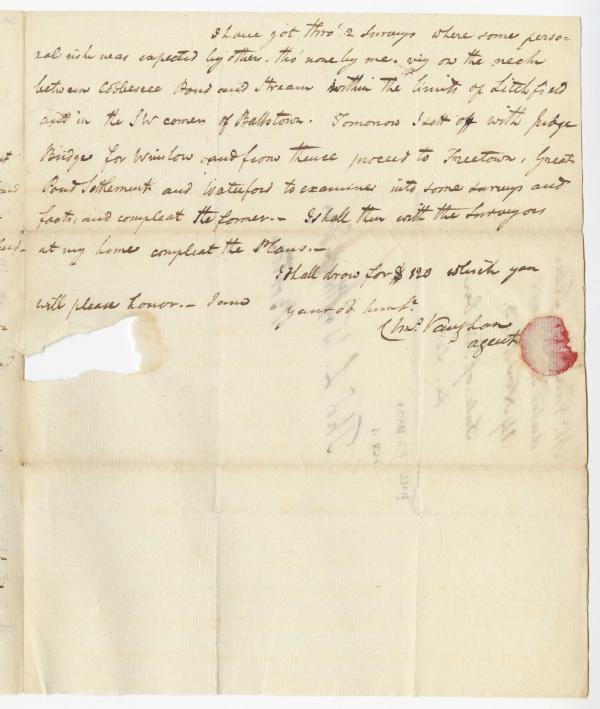 I have got thro' 2 surveys where some perso-
nal risk was expected by others, tho' none by me. viz on the neck
between Cobbesee Pond and Stream within the limits of Litchfield
and in the SW corner of Ballstown. Tomorrow I sett off with Judge
Bridge for Winslow and from thence proceed to Freetown, Great
Pond Settlement and Waterford to examine into some surveys and
facts, and compleat the former.- I shall then with the Surveyors
at my home compleat the Plans.-
I shall draw for $120 which you
will please honor.- I am your ob. humst.
Chas. Vaughan
agent